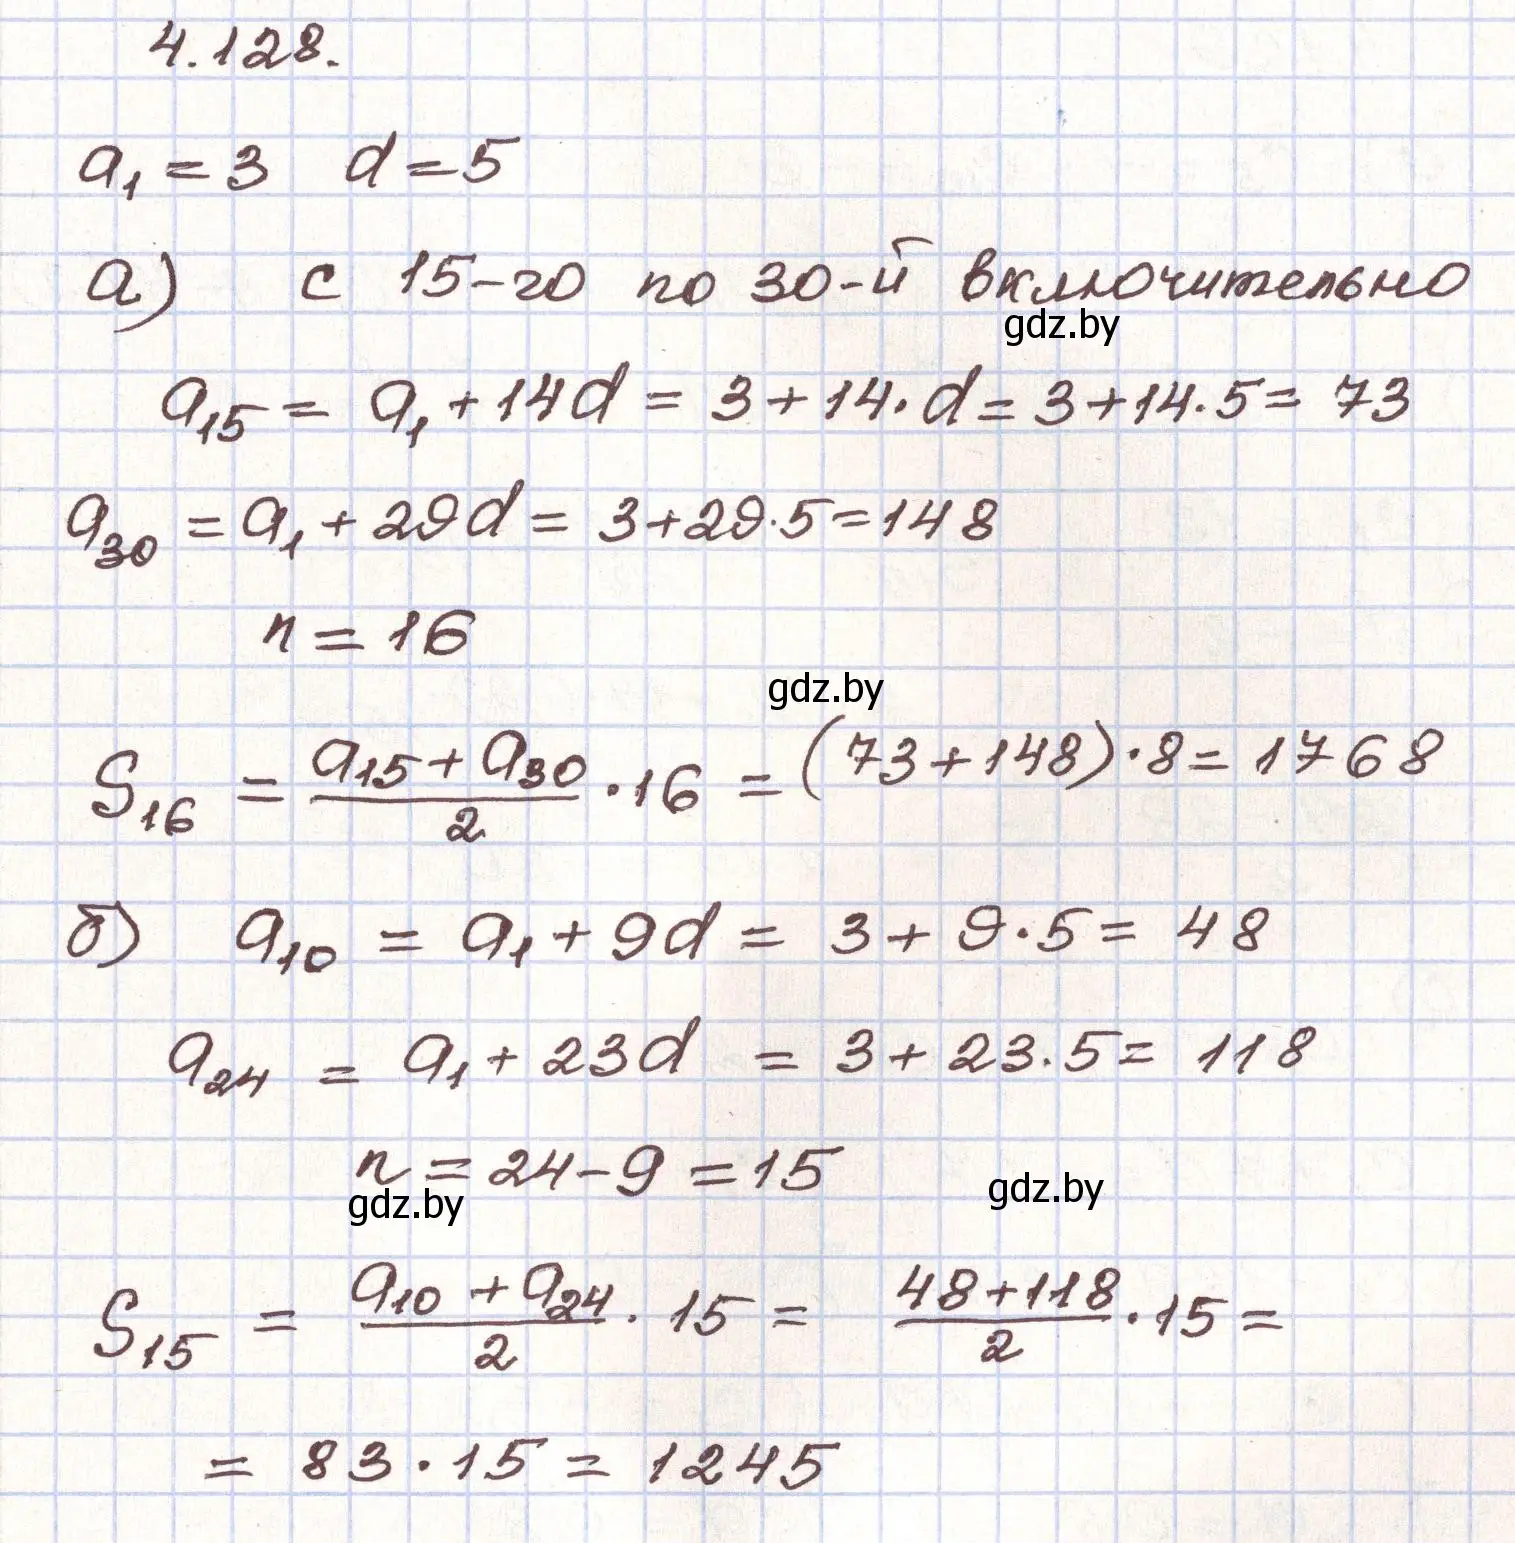 4.128.
a₁ = 3 d = 5
а) с 15-го по 30-й включительно
gdz.by
a₁₅ = a₁ + 14d = 3 + 14 · d = 3 + 14 · 5 = 73
a₃₀ = a₁ + 29d = 3 + 29 · 5 = 148
n = 16
gdz.by
S₁₆ = (a₁₅ + a₃₀)/2 · 16 = (73 + 148) · 8 = 1768
б) a₁₀ = a₁ + 9d = 3 + 9 · 5 = 48
a₂₄ = a₁ + 23d = 3 + 23 · 5 = 118
n = 24 - 9 = 15
gdz.by gdz.by
S₁₅ = (a₁₀ + a₂₄)/2 · 15 = (48 + 118)/2 · 15 =
= 83 · 15 = 1245